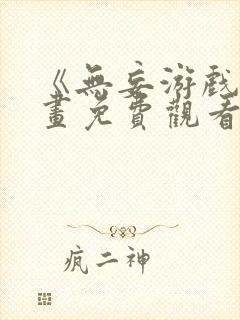 《無妄游戲
畫免費觀看
疯二神